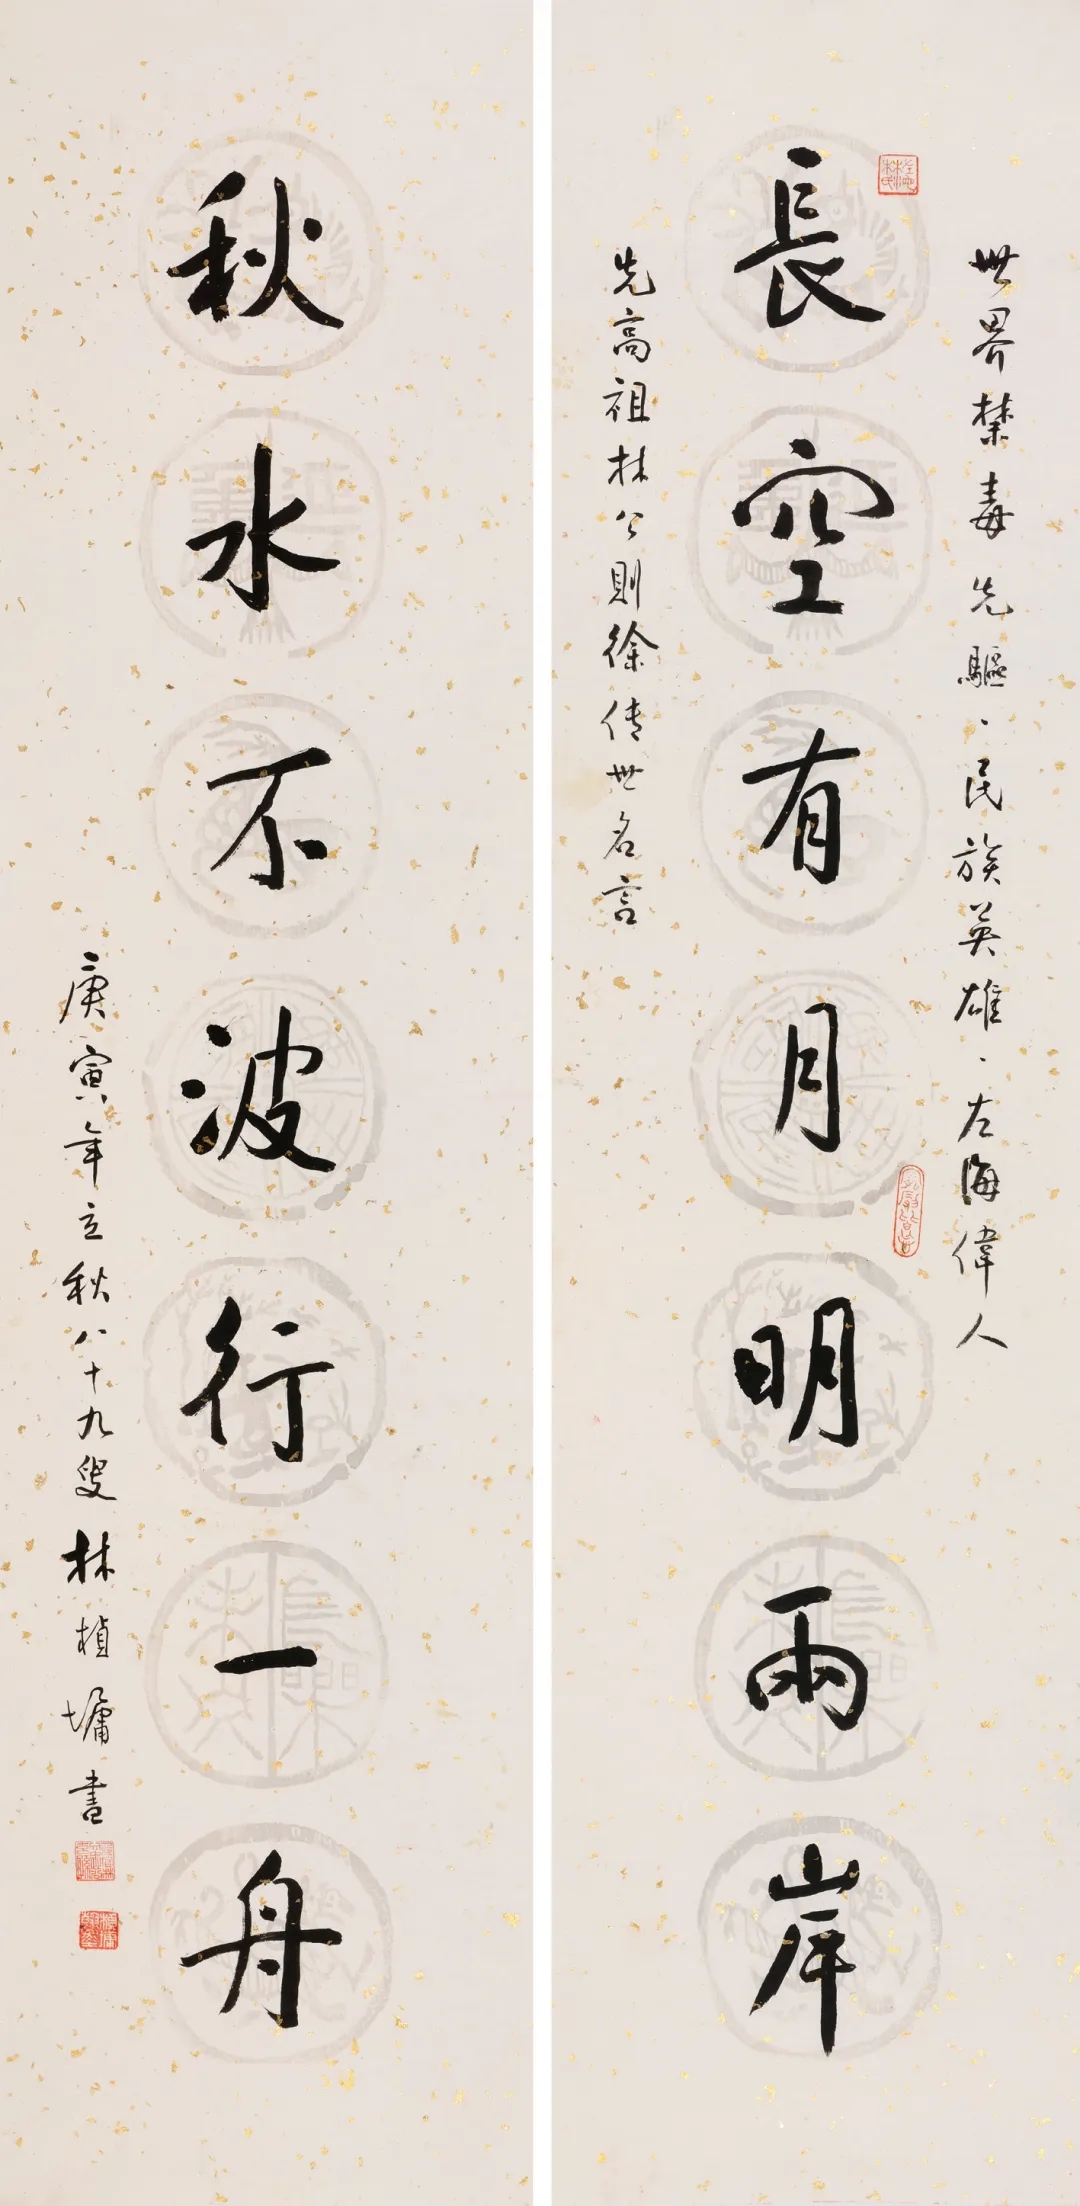 世界禁毒先驅、民族英雄、左海偉人
長空有月明兩岸
先高祖林公則徐传世名言
秋水不波行一舟
庚寅年立秋八十九叟林楨墉書